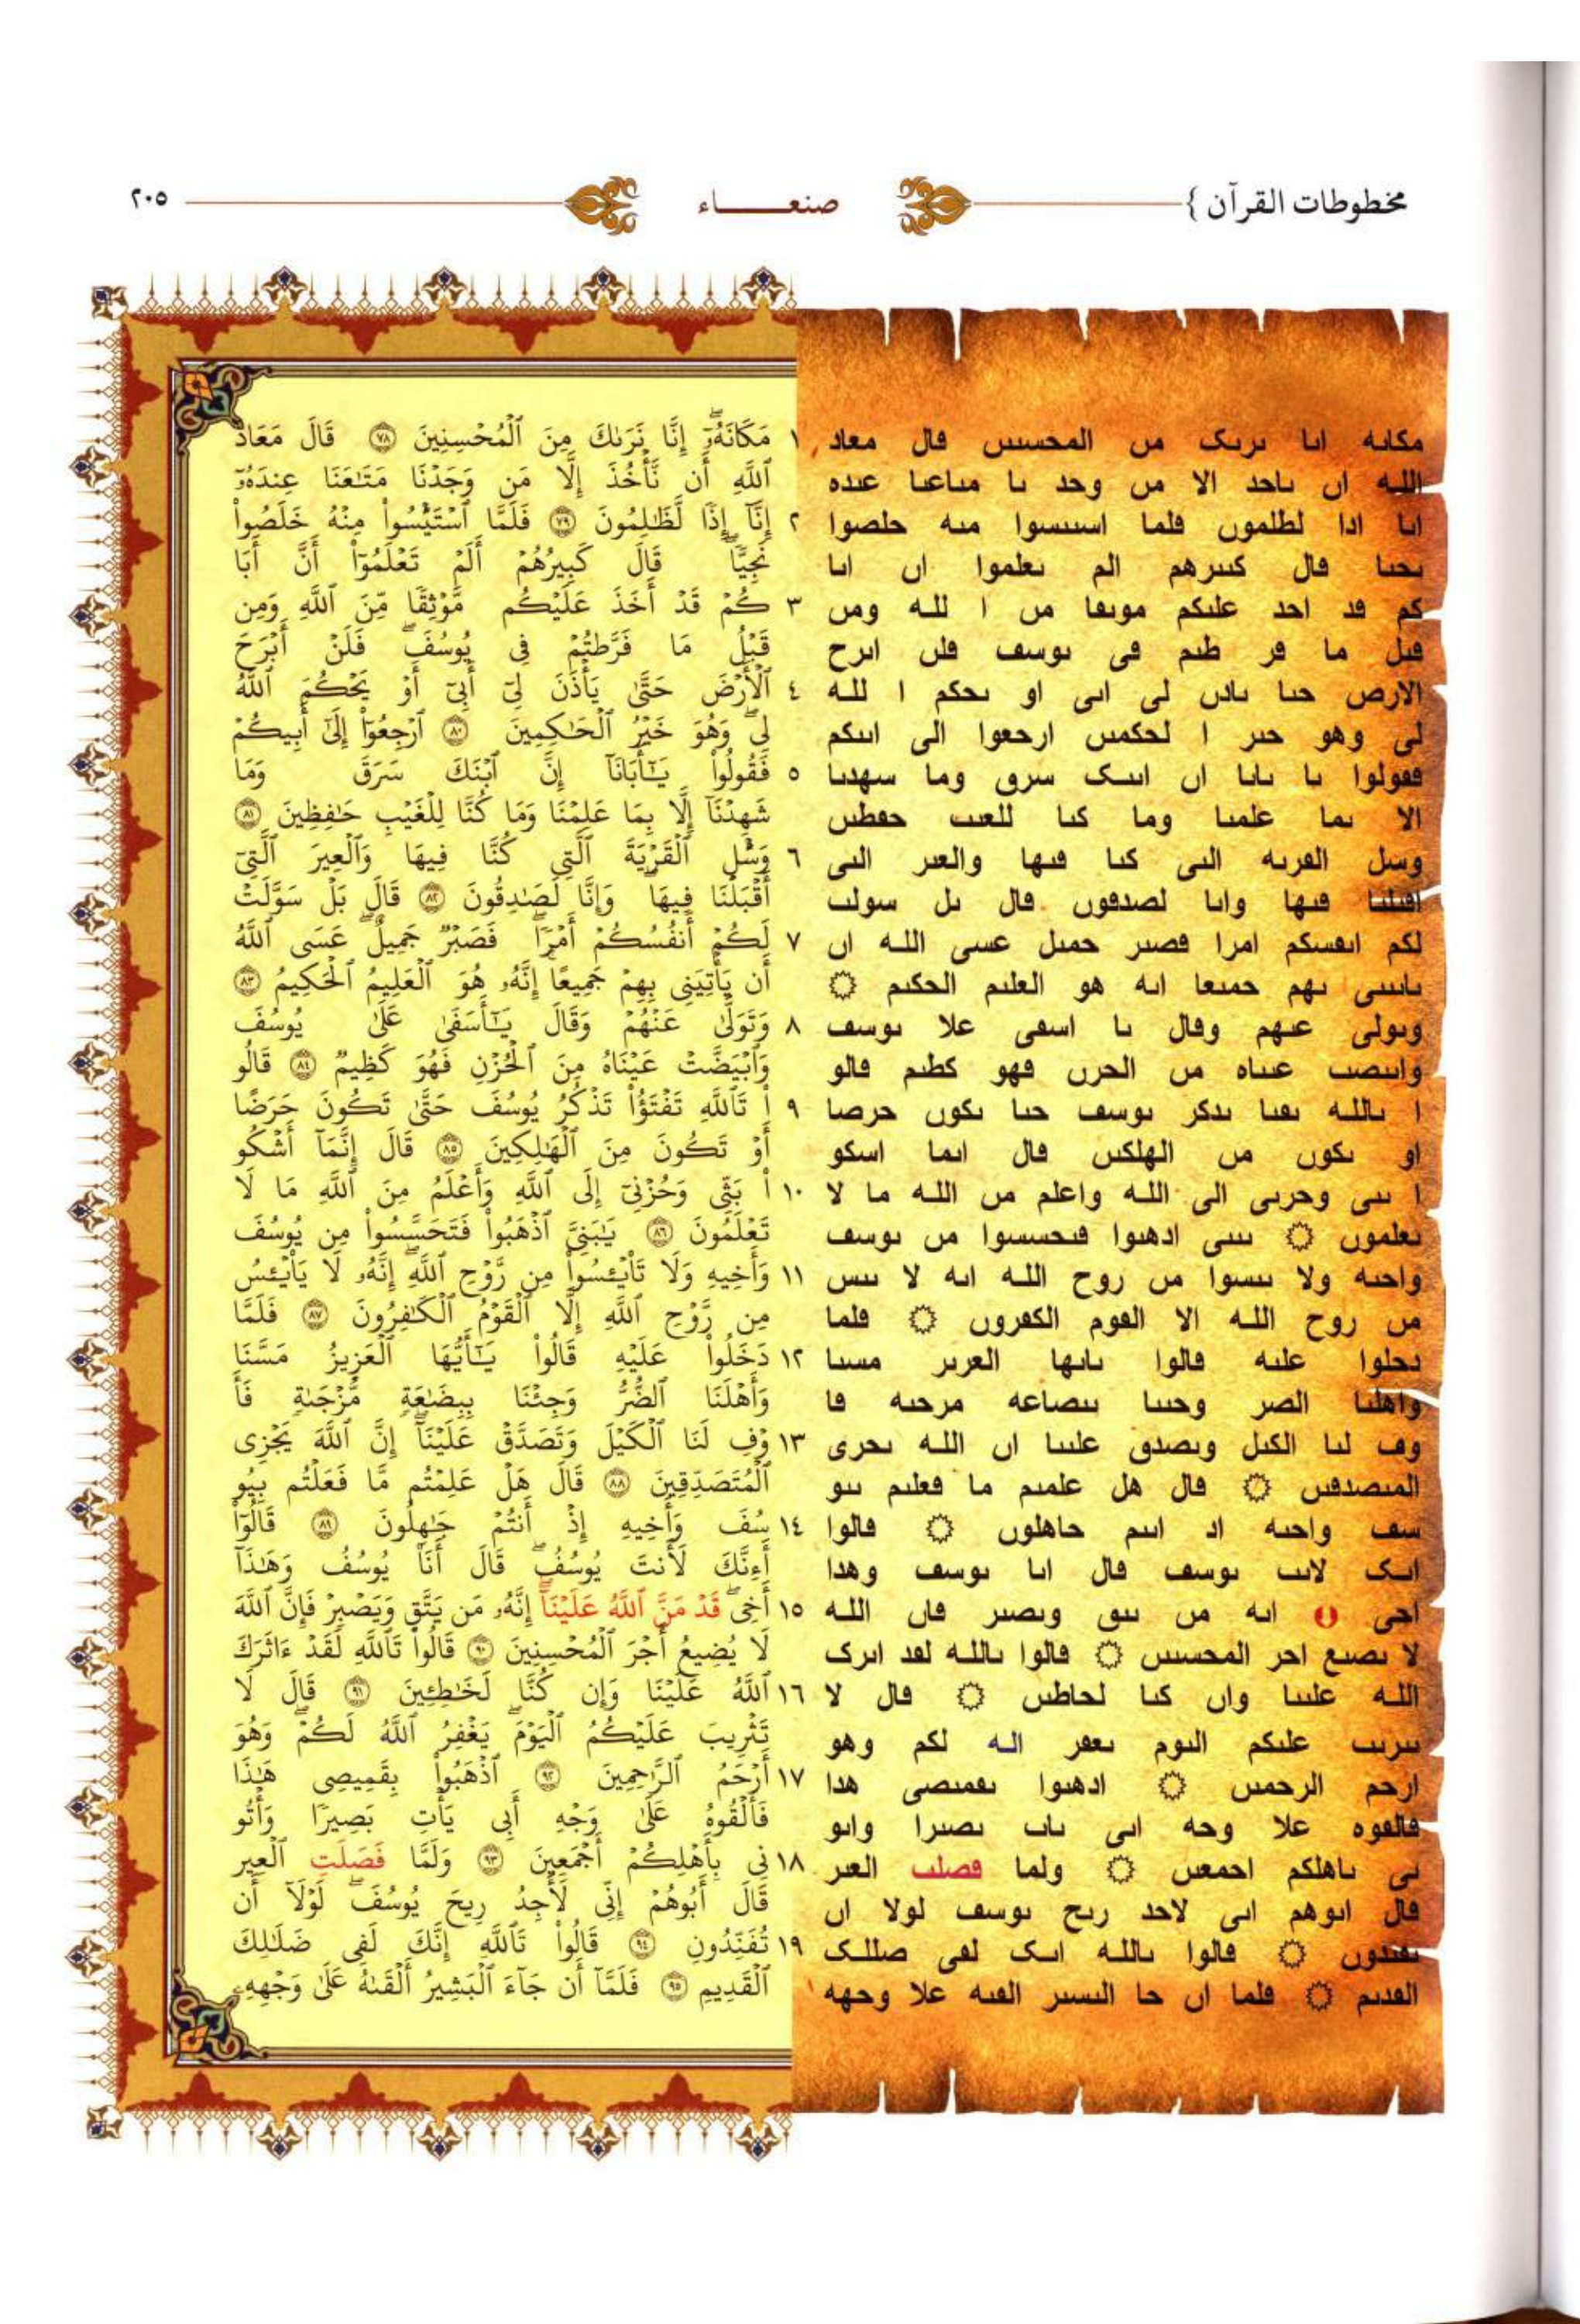 مخطوطات القرآن }
صنعـــــاء
٢٠٥
مکاٮه اٮا ٮرٮک مں المحسٮٮں ڡال معاد
الله اں ٮاحد الا مں وحد ٮا مٮاعٮا عٮده
اٮا ادا لطلموں ڡلما اسٮٮسوا مٮه حلصوا
ٮحٮا ڡال کٮٮرهم الم ٮعلموا اں اٮا
کم ڡد احد علٮکم موٮڡا مں ا لله ومں
ڡٮل ما ڡر طٮم ڡى ٮوسڡ ڡلں اٮرح
الارص حٮا ٮادں لى اٮى او ٮحکم ا لله
لى وهو حٮر ا لحکمٮں ارحعوا الى اٮٮکم
ڡڡولوا ٮا ٮاٮا اں اٮٮک سرٯ وما سهدٮا
الا ٮما علمٮا وما کٮا للعٮٮ حڡطٮں
وسل الڡرٮه الٮى کٮا ڡٮها والعٮر الٮى
اڡٮلٮا ڡٮها واٮا لصدڡوں ڡال ٮل سولٮ
لکم اٮڡسکم امرا ڡصٮر حمٮل عسى الله اں
ٮاٮٮى ٮهم حمٮعا اٮه هو العلٮم الحکٮم ۞
وٮولى عٮهم وڡال ٮا اسڡى علا ٮوسڡ
واٮٮصٮ عٮٮاه مں الحرں ڡهو کطٮم ڡالو
ا ٮالله ٮڡٮا ٮدکر ٮوسڡ حٮا ٮکوں حرصا
او ٮکوں مں الهلکٮں ڡال اٮما اسکو
ا ٮٮى وحرٮى الى الله واعلم مں الله ما لا
ٮعلموں ۞ ٮٮٮى ادهٮوا ڡٮحسسوا مں ٮوسڡ
واحٮه ولا ٮٮسوا مں روح الله اٮه لا ٮٮس
مں روح الله الا الڡوم الکڡروں ۞ ڡلما
دحلوا علٮه ڡالوا ٮاٮها العرٮر مسٮا
واهلٮا الصر وحٮٮا ٮٮصاعه مرحٮه ڡا
وڡ لٮا الکٮل وٮصدٯ علٮٮا اں الله ٮحرى
المٮصدڡٮں ۞ ڡال هل علمٮم ما ڡعلٮم ٮٮو
سڡ واحٮه اد اٮٮم حاهلوں ۞ ڡالوا
اٮٮک لاٮٮ ٮوسڡ ڡال اٮا ٮوسڡ وهدا
احى اٮه مں ٮٮٯ وٮصٮر ڡاں الله
لا ٮصٮع احر المحسٮٮں ۞ ڡالوا ٮالله لڡد اٮرک
الله علٮٮا واں کٮا لحاطٮں ۞ ڡال لا
ٮٮرٮٮ علٮکم الٮوم ٮعڡر اله لکم وهو
ارحم الرحمٮں ۞ ادهٮوا ٮڡمٮصى هدا
ڡالڡوه علا وحه اٮى ٮاٮ ٮصٮرا واٮو
ٮى ٮاهلکم احمعٮں ۞ ولما ڡصلٮ العٮر
ڡال اٮوهم اٮى لاحد رٮح ٮوسڡ لولا اں
ٮڡٮدوں ۞ ڡالوا ٮالله اٮک لڡى صللک
الڡدٮم ۞ ڡلما اں حا الٮسٮر الڡٮه علا وحهه
١ مَكَانَهُۥٓۖ إِنَّا نَرَىٰكَ مِنَ ٱلۡمُحۡسِنِينَ ٧٨ قَالَ مَعَاذَ
ٱللَّهِ أَن نَّأۡخُذَ إِلَّا مَن وَجَدۡنَا مَتَٰعَنَا عِندَهُۥٓ
٢ إِنَّآ إِذٗا لَّظَٰلِمُونَ ٧٩ فَلَمَّا ٱسۡتَيۡـَٔسُواْ مِنۡهُ خَلَصُواْ
نَجِيّٗاۖ قَالَ كَبِيرُهُمۡ أَلَمۡ تَعۡلَمُوٓاْ أَنَّ أَبَا
٣ كُمۡ قَدۡ أَخَذَ عَلَيۡكُم مَّوۡثِقٗا مِّنَ ٱللَّهِ وَمِن
قَبۡلُ مَا فَرَّطتُمۡ فِي يُوسُفَۖ فَلَنۡ أَبۡرَحَ
٤ ٱلۡأَرۡضَ حَتَّىٰ يَأۡذَنَ لِيٓ أَبِيٓ أَوۡ يَحۡكُمَ ٱللَّهُ
لِيۖ وَهُوَ خَيۡرُ ٱلۡحَٰكِمِينَ ٨٠ ٱرۡجِعُوٓاْ إِلَىٰٓ أَبِيكُمۡ
٥ فَقُولُواْ يَٰٓأَبَانَآ إِنَّ ٱبۡنَكَ سَرَقَ وَمَا
شَهِدۡنَآ إِلَّا بِمَا عَلِمۡنَا وَمَا كُنَّا لِلۡغَيۡبِ حَٰفِظِينَ ٨١
٦ وَسۡـَٔلِ ٱلۡقَرۡيَةَ ٱلَّتِي كُنَّا فِيهَا وَٱلۡعِيرَ ٱلَّتِيٓ
أَقۡبَلۡنَا فِيهَاۖ وَإِنَّا لَصَٰدِقُونَ ٨٢ قَالَ بَلۡ سَوَّلَتۡ
٧ لَكُمۡ أَنفُسُكُمۡ أَمۡرٗاۖ فَصَبۡرٞ جَمِيلٌۖ عَسَى ٱللَّهُ
أَن يَأۡتِيَنِي بِهِمۡ جَمِيعًاۚ إِنَّهُۥ هُوَ ٱلۡعَلِيمُ ٱلۡحَكِيمُ ٨٣
٨ وَتَوَلَّىٰ عَنۡهُمۡ وَقَالَ يَٰٓأَسَفَىٰ عَلَىٰ يُوسُفَ
وَٱبۡيَضَّتۡ عَيۡنَاهُ مِنَ ٱلۡحُزۡنِ فَهُوَ كَظِيمٞ ٨٤ قَالُو
٩ اْ تَٱللَّهِ تَفۡتَؤُاْ تَذۡكُرُ يُوسُفَ حَتَّىٰ تَكُونَ حَرَضًا
أَوۡ تَكُونَ مِنَ ٱلۡهَٰلِكِينَ ٨٥ قَالَ إِنَّمَآ أَشۡكُو
١٠ اْ بَثِّي وَحُزۡنِيٓ إِلَى ٱللَّهِ وَأَعۡلَمُ مِنَ ٱللَّهِ مَا لَا
تَعۡلَمُونَ ٨٦ يَٰبَنِيَّ ٱذۡهَبُواْ فَتَحَسَّسُواْ مِن يُوسُفَ
١١ وَأَخِيهِ وَلَا تَاْيۡـَٔسُواْ مِن رَّوۡحِ ٱللَّهِۖ إِنَّهُۥ لَا يَاْيۡـَٔسُ
مِن رَّوۡحِ ٱللَّهِ إِلَّا ٱلۡقَوۡمُ ٱلۡكَٰفِرُونَ ٨٧ فَلَمَّا
١٢ دَخَلُواْ عَلَيۡهِ قَالُواْ يَٰٓأَيُّهَا ٱلۡعَزِيزُ مَسَّنَا
وَأَهۡلَنَا ٱلضُّرُّ وَجِئۡنَا بِبِضَٰعَةٖ مُّزۡجَىٰةٖ فَأَ
١٣ وۡفِ لَنَا ٱلۡكَيۡلَ وَتَصَدَّقۡ عَلَيۡنَآۖ إِنَّ ٱللَّهَ يَجۡزِي
ٱلۡمُتَصَدِّقِينَ ٨٨ قَالَ هَلۡ عَلِمۡتُم مَّا فَعَلۡتُم بِيُو
١٤ سُفَ وَأَخِيهِ إِذۡ أَنتُمۡ جَٰهِلُونَ ٨٩ قَالُوٓاْ
أَءِنَّكَ لَأَنتَ يُوسُفُۖ قَالَ أَنَا۠ يُوسُفُ وَهَٰذَآ
١٥ أَخِيۖ قَدۡ مَنَّ ٱللَّهُ عَلَيۡنَآۖ إِنَّهُۥ مَن يَتَّقِ وَيَصۡبِرۡ فَإِنَّ ٱللَّهَ
لَا يُضِيعُ أَجۡرَ ٱلۡمُحۡسِنِينَ ٩٠ قَالُواْ تَٱللَّهِ لَقَدۡ ءَاثَرَكَ
١٦ ٱللَّهُ عَلَيۡنَا وَإِن كُنَّا لَخَٰطِـِٔينَ ٩١ قَالَ لَا
تَثۡرِيبَ عَلَيۡكُمُ ٱلۡيَوۡمَۖ يَغۡفِرُ ٱللَّهُ لَكُمۡۖ وَهُوَ
١٧ أَرۡحَمُ ٱلرَّٰحِمِينَ ٩٢ ٱذۡهَبُواْ بِقَمِيصِي هَٰذَا
فَأَلۡقُوهُ عَلَىٰ وَجۡهِ أَبِي يَأۡتِ بَصِيرٗا وَأۡتُو
١٨ نِي بِأَهۡلِكُمۡ أَجۡمَعِينَ ٩٣ وَلَمَّا فَصَلَتِ ٱلۡعِيرُ
قَالَ أَبُوهُمۡ إِنِّي لَأَجِدُ رِيحَ يُوسُفَۖ لَوۡلَآ أَن
١٩ تُفَنِّدُونِ ٩٤ قَالُواْ تَٱللَّهِ إِنَّكَ لَفِي ضَلَٰلِكَ
ٱلۡقَدِيمِ ٩٥ فَلَمَّآ أَن جَآءَ ٱلۡبَشِيرُ أَلۡقَىٰهُ عَلَىٰ وَجۡهِهِۦ